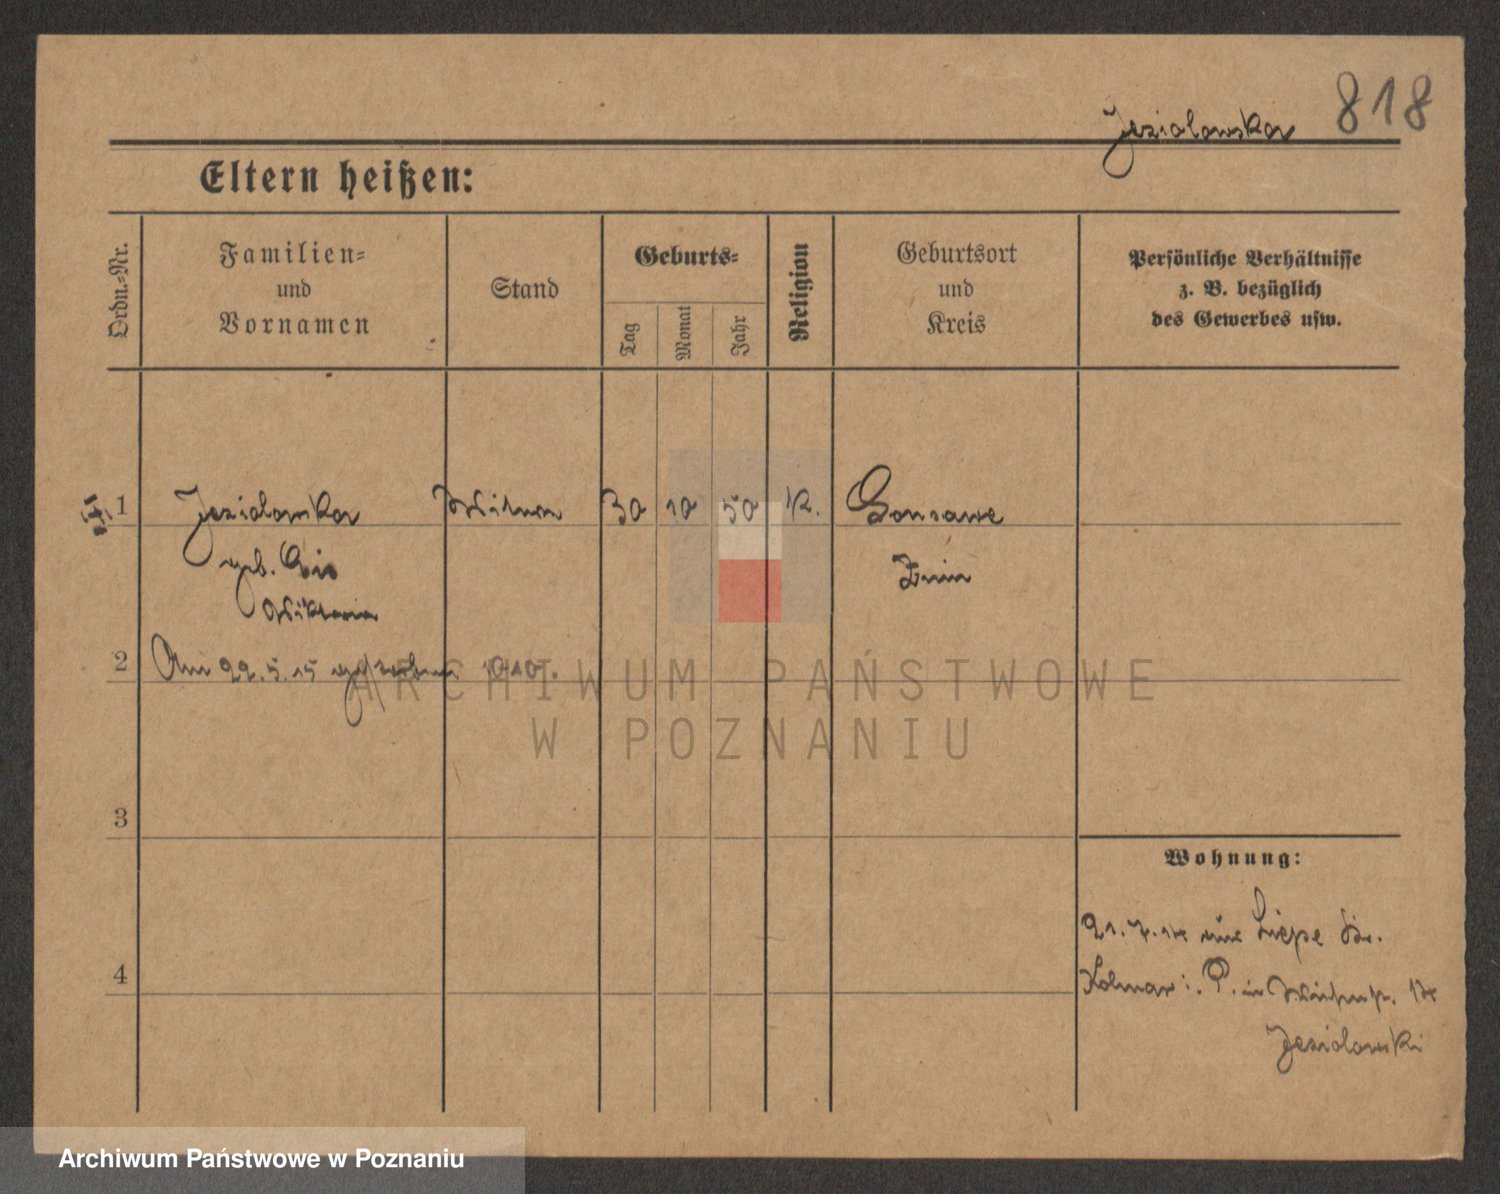 818
Jezialowska
Eltern heißen:
Ordn.-Nr.
Familien-
und
Vornamen
Stand
Geburts-
Tag
Monat
Jahr
Religion
Geburtsort
und
Kreis
Persönliche Verhältnisse
z. B. bezüglich
des Gewerbes usw.
1 Jezialowska Witwe 30 10 50 K. Gonsawe
geb. Znin
Wiktoria
2 Am 22.5.15 gestorben
ARCHIWUM PAŃSTWOWE
W POZNANIU
3
Wohnung:
21.7.14 Liepe Kr.
4 Kolmar i. P. in 14
Jezialowski
Archiwum Państwowe w Poznaniu